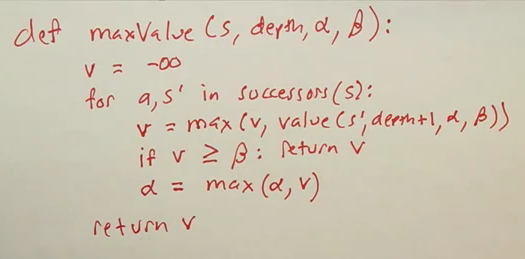 def maxValue (s, depth, α, β):
v = -∞
for a, s' in successors(s):
v = max (v, value (s', depth+1, α, β))
if v ≥ β: return v
α = max (α, v)
return v